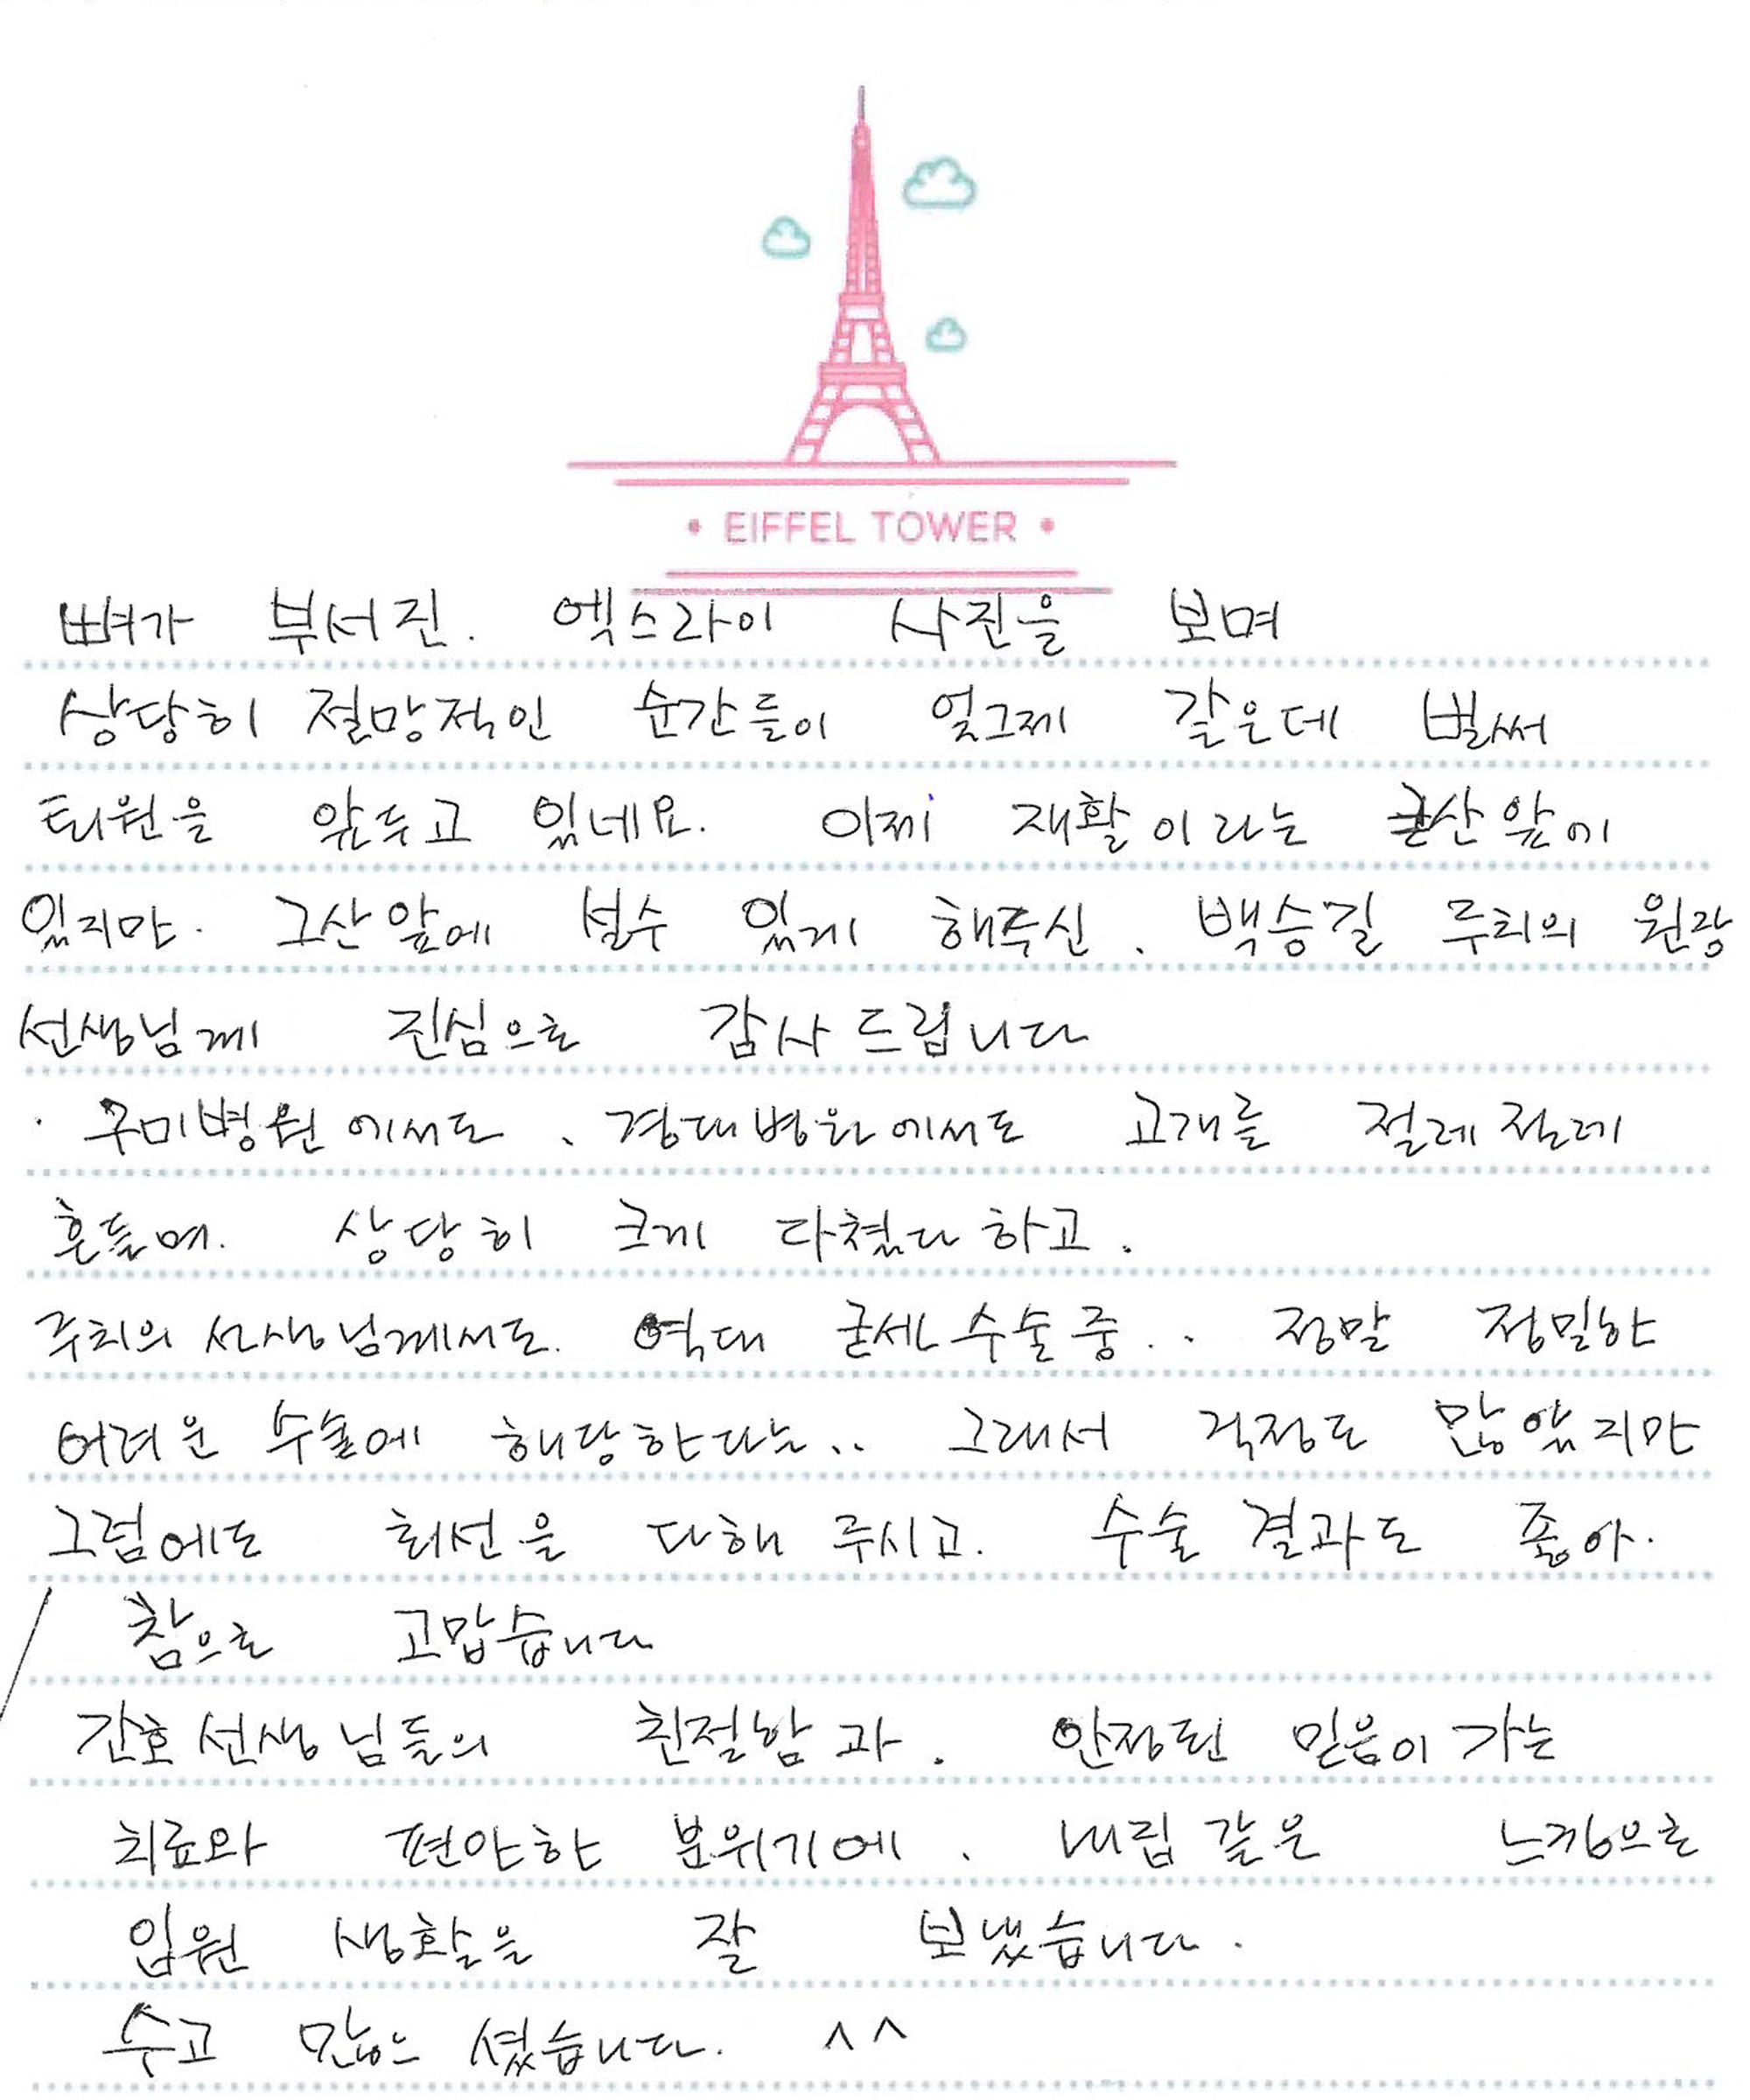 EIFFEL TOWER
뼈가 부서진. 엑스라이 사진을 보며
상당히 절망적인 순간들이 엊그제 같은데 벌써
퇴원을 앞두고 있네요. 이제 재활이라는 큰산앞에
있지만. 그산앞에 설수 있게 해주신. 백승길 주치의 원장
선생님께 진심으로 감사드립니다
· 구미병원에서도, 경대병원에서도 고개를 절레절레
흔들며. 상당히 크게 다쳤다하고.
주치의 선생님께서도. 역대 수술중.. 정말 정밀한
어려운 수술에 해당한다는.. 그래서 걱정도 많았지만
그럼에도 최선을 다해 주시고. 수술 결과도 좋아.
참으로 고맙습니다
간호선생님들의 친절함과. 안정된 믿음이가는
치료와 편안한 분위기에. 내집같은 느낌으로
입원 생활을 잘 보냈습니다.
수고 많으셨습니다. ^^